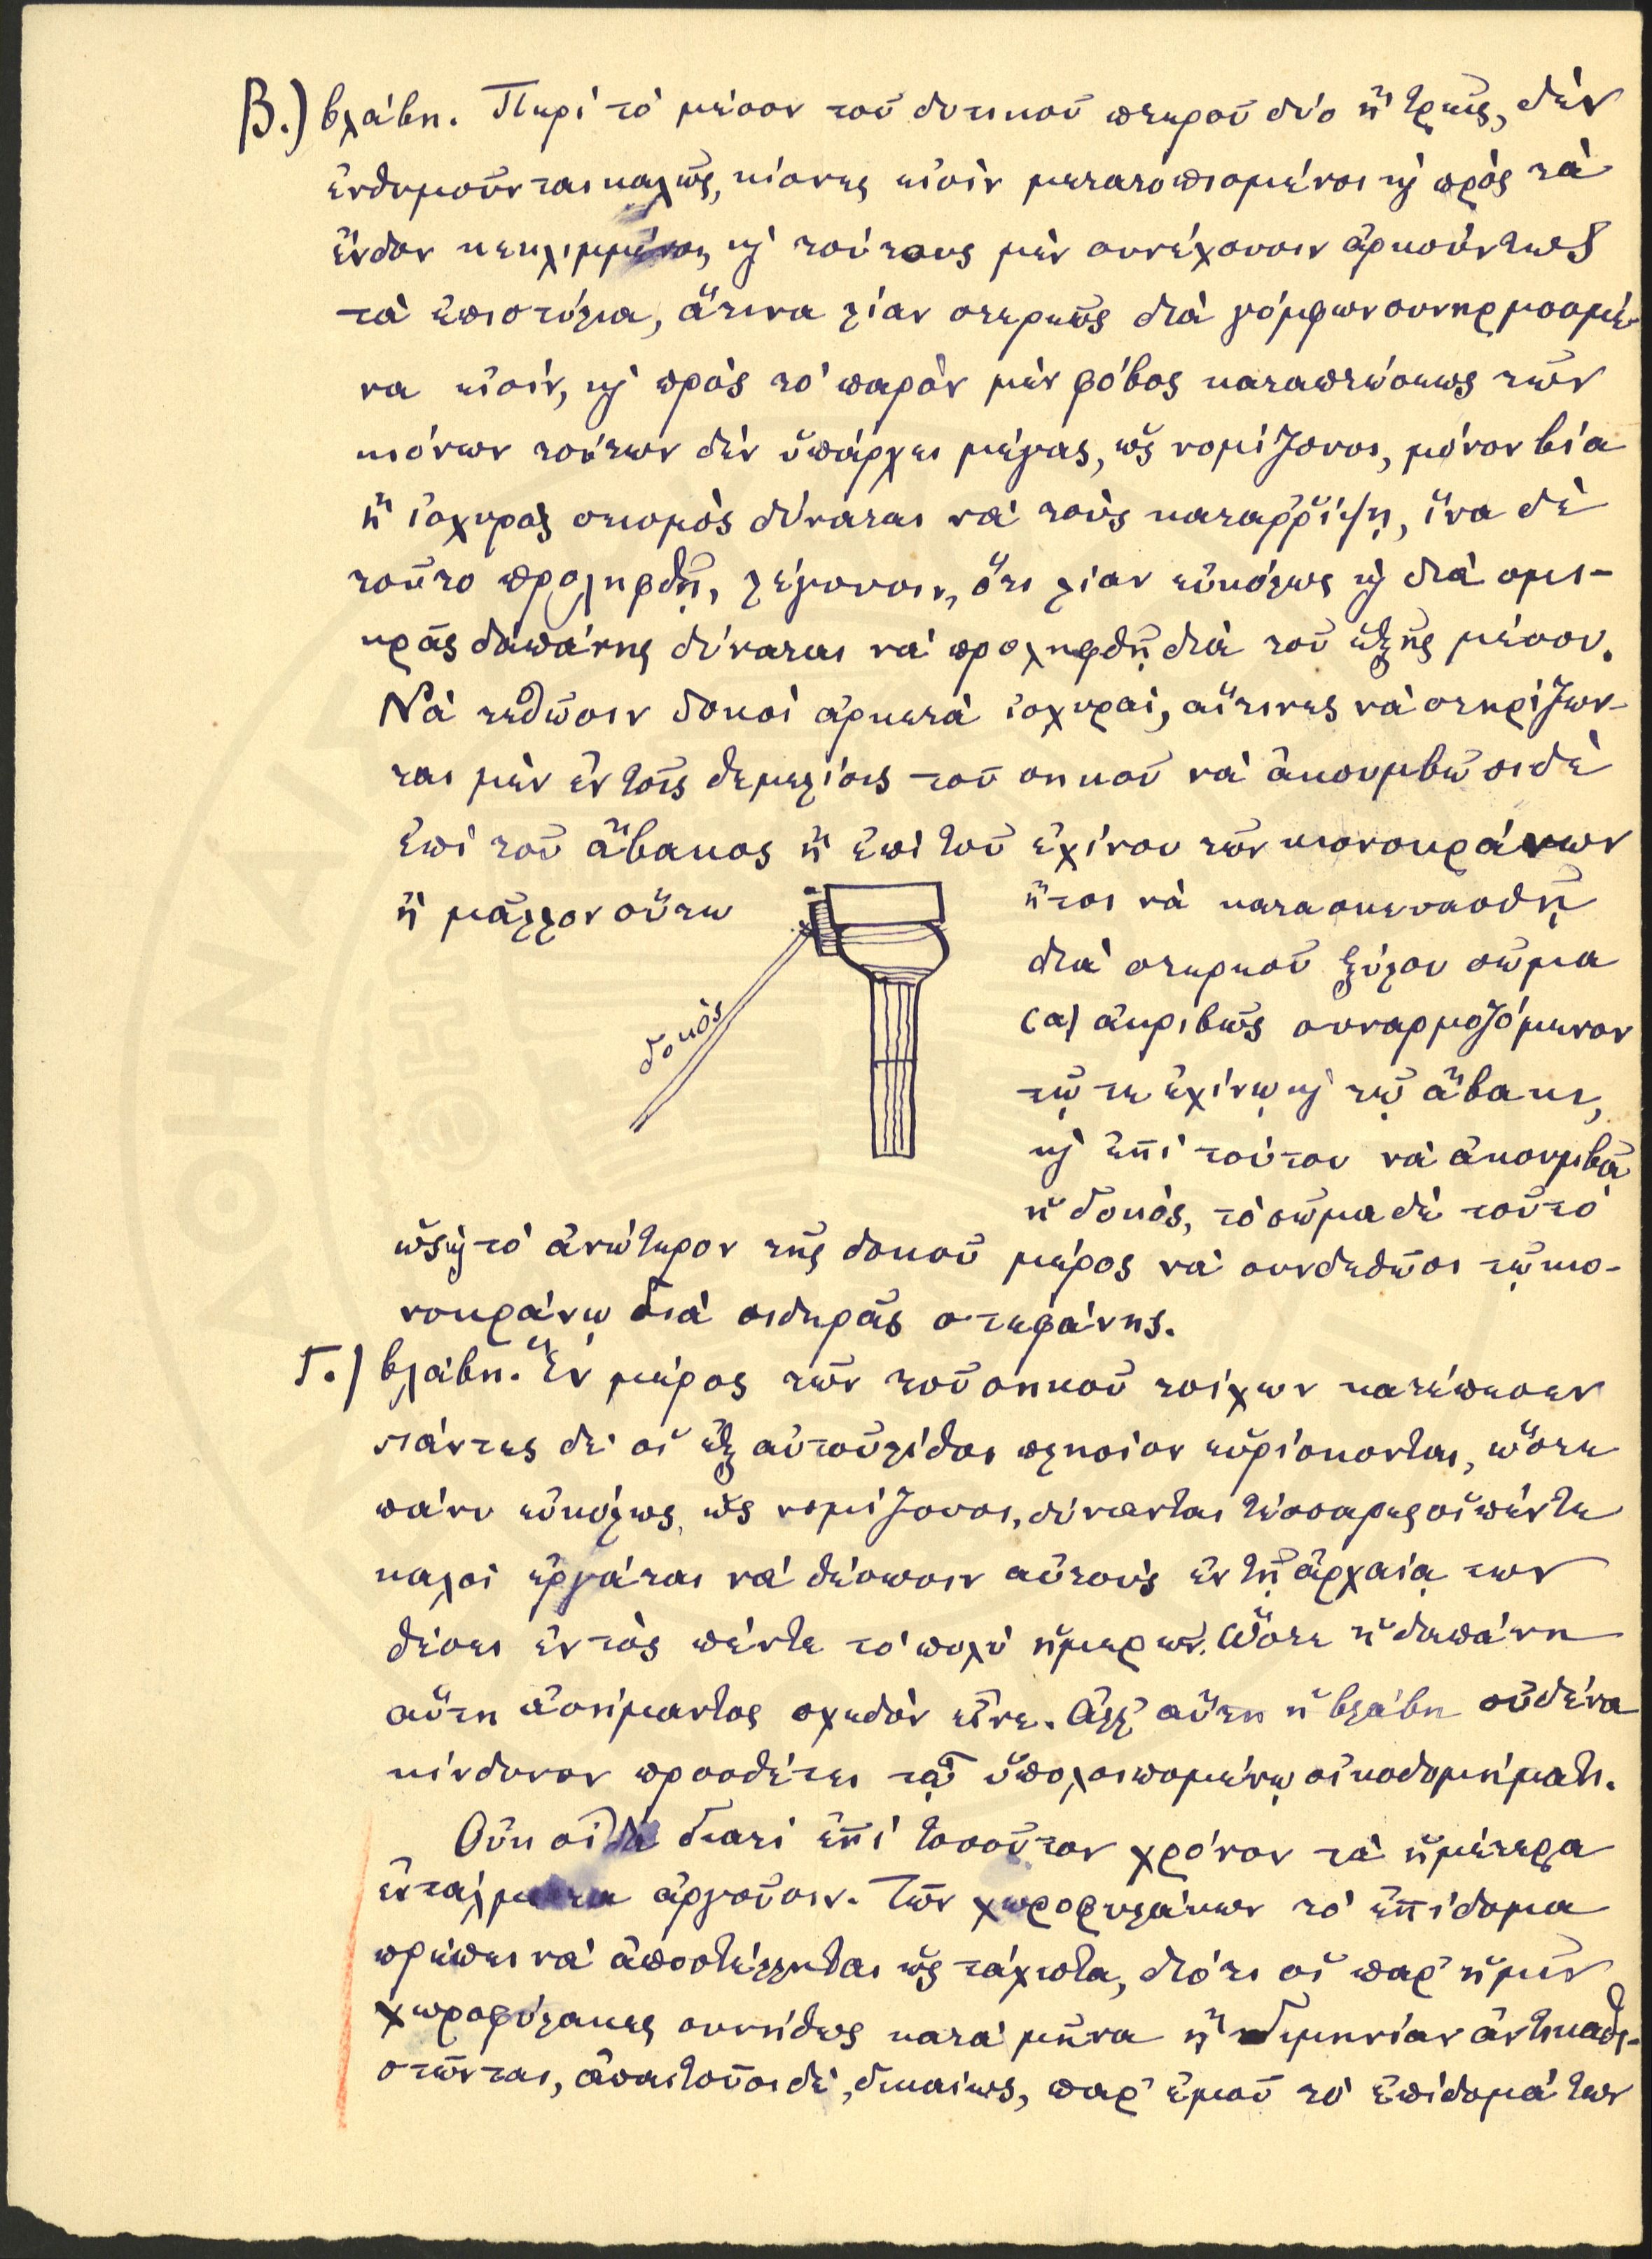 Β.) βλάβη. Περὶ τὸ μέσον τοῦ δυτικοῦ πτεροῦ δύο ἢ τρεῖς, δὲν
ἐνθυμοῦνται καλῶς, κίονες εἰσὶν μετατοπισμένοι κὶ πρὸς τὰ
ἔνδον κεκλιμμένοι, κὶ τούτους μὲν συνέχουσιν ἀρκούντως
τὰ ἐπιστύλια, ἅτινα λίαν στερεῶς διὰ γόμφων συνηρμοσμέ-
να εἰσίν, κὶ πρὸς τὸ παρὸν μὲν φόβος καταπτώσεως τῶν
κιόνων τούτων δὲν ὑπάρχει μέγας, ὡς νομίζουσι, μόνον βία
ἢ ἰσχυρὸς σεισμὸς δύναται νὰ τοὺς καταῤῥίψῃ, ἵνα δὲ
τοῦτο προληφθῇ, λέγουσιν, ὅτι λίαν εὐκόλως κὶ διὰ σμι-
κρᾶς δαπάνης δύναται νὰ προληφθῇ διὰ τοῦ ἑξῆς μέσου.
Νὰ τεθῶσιν δοκοὶ ἀρκετὰ ἰσχυραί, αἵτινες νὰ στηρίζων-
ται μὲν ἐν τοῖς θεμελίοις τοῦ σηκοῦ νὰ ἀκουμβῶσι δὲ
ἐπὶ τοῦ ἄβακος ἢ ἐπὶ τοῦ ἐχίνου τῶν κιονοκράνων
ἢ μᾶλλον οὕτω
ἤτοι νὰ κατασκευασθῇ
διὰ στερεοῦ ξύλου σῶμα
(α) ἀκριβῶς συναρμοζόμενον
τῷ τε ἐχίνῳ κὶ τῷ ἄβακι,
κὶ ἐπὶ τούτου νὰ ἀκουμβᾷ
ἡ δοκός, τὸ σῶμα δὲ τοῦτο
δοκὸς
ὡς κὶ τὸ ἀνώτερον τῆς δοκοῦ μέρος νὰ συνδεθῶσι τῷ κιο-
νοκράνῳ διὰ σιδηρᾶς στεφάνης.
Γ.) βλάβη. Ἓν μέρος τῶν τοῦ σηκοῦ τοίχων κατέπεσεν
πάντες δὲ οἱ ἐξ αὐτοῦ λίθοι πλησίον εὑρίσκονται, ὥστε
πάνυ εὐκόλως, ὡς νομίζουσι, δύνανται τέσσαρες οἱ πέντε
καλοὶ ἐργάται νὰ θέσωσιν αὐτοὺς ἐν τῇ ἀρχαίᾳ των
θέσει ἐντὸς πέντε τὸ πολὺ ἡμερῶν. Ὥστε ἡ δαπάνη
αὕτη ἀσήμαντος σχεδὸν εἶνε. Ἀλλ' αὕτη ἡ βλάβη οὐδένα
κίνδυνον προσθέτει τῷ ὑπολειπομένῳ οἰκοδομήματι.
Οὐκ οἶδα διατὶ ἐπὶ τοσοῦτον χρόνον τὰ ἡμέτερα
ἐντάλματα ἀργοῦσιν. Τῶν χωροφυλάκων τὸ ἐπίδομα
πρέπει νὰ ἀποστέλληται ὡς τάχιστα, διότι οἱ παρ' ἡμῖν
χωροφύλακες συνήθως κατὰ μῆνα ἢ διμηνίαν ἀντικαθι-
στῶνται, ἀπαιτοῦσι δὲ, δικαίως, παρ' ἐμοῦ τὸ ἐπίδομά των